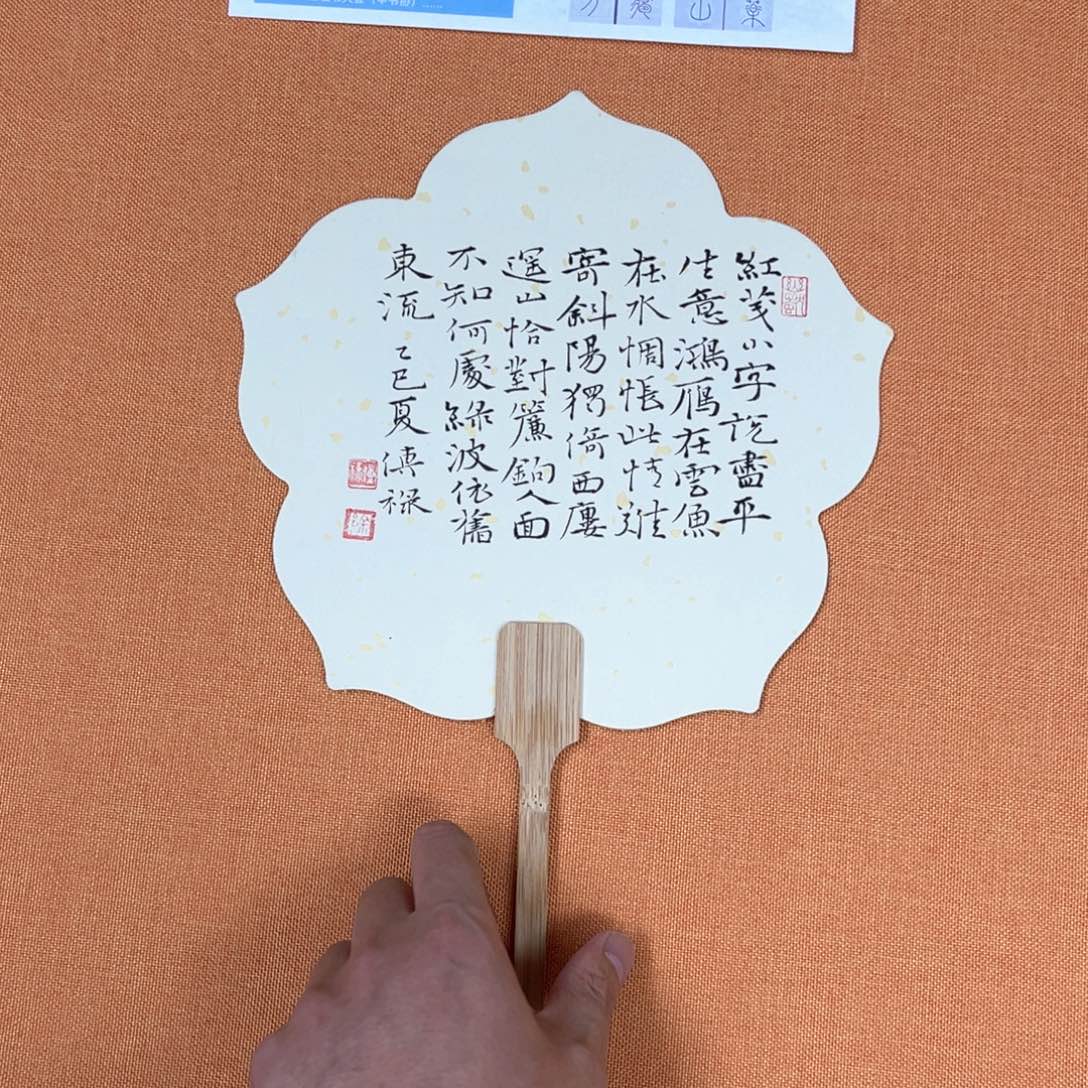 紅箋小字說盡平
生意鴻雁在雲魚
在水惆悵此情難
寄斜陽獨倚西廔
遥山恰對簾鉤人面
不知何處綠波依舊
東流 乙巳夏 傳祿